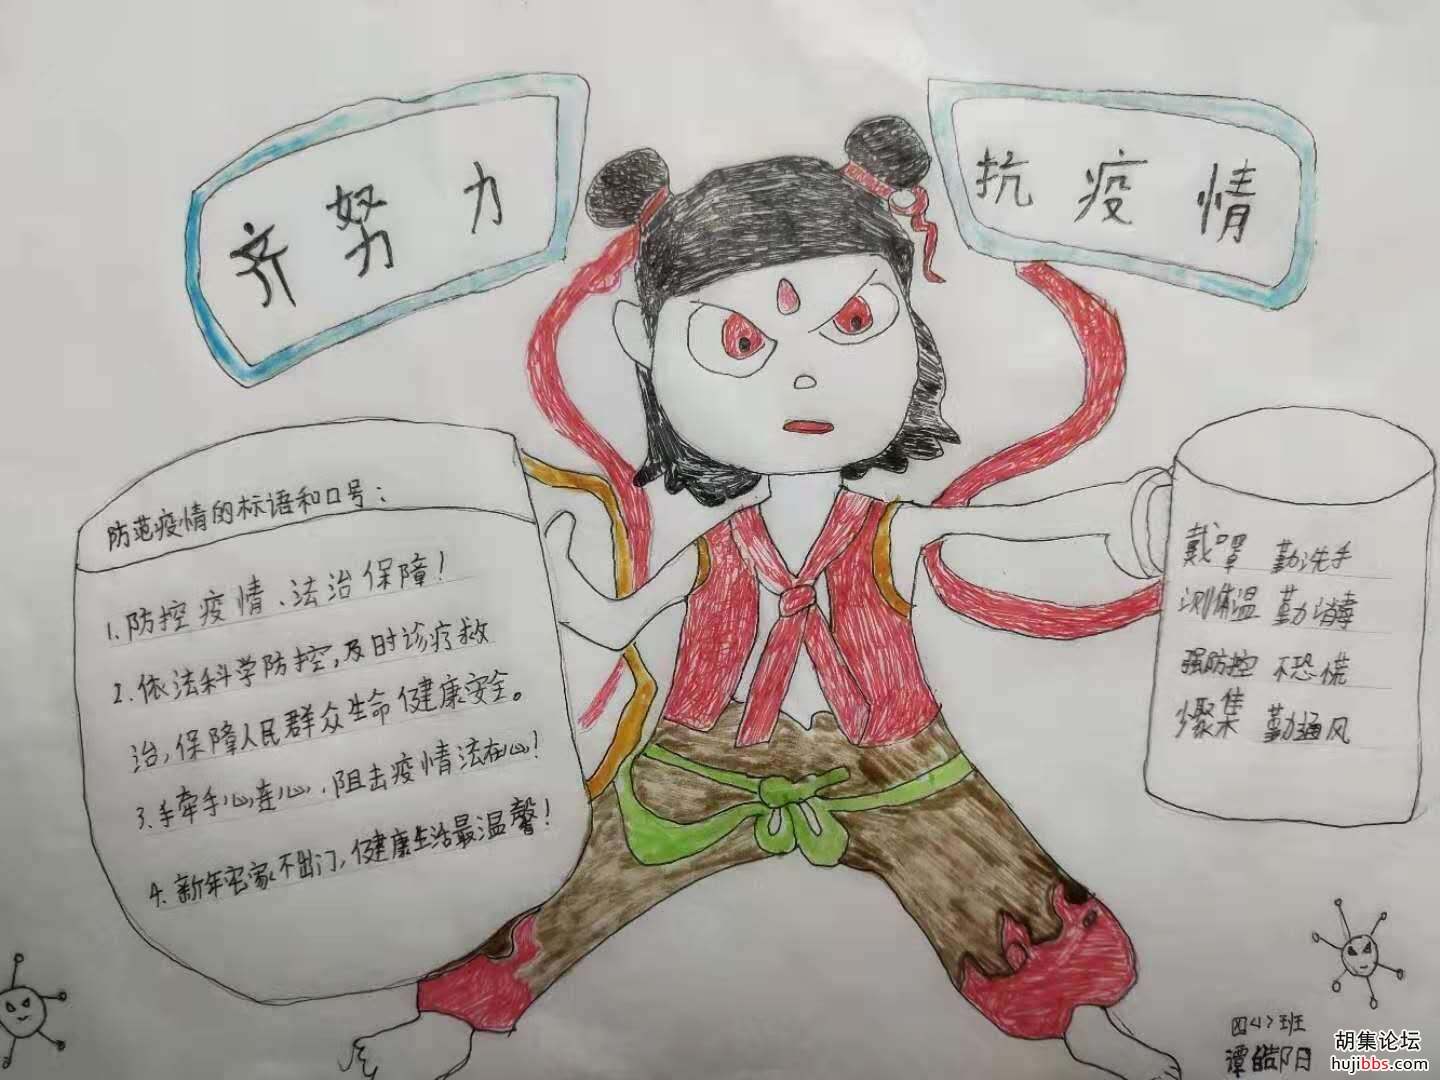 齐努力
抗疫情
防范疫情的标语和口号：
1.防控疫情、法治保障！
2.依法科学防控，及时诊疗救
治，保障人民群众生命健康安全。
3.手牵手心连心，阻击疫情法在心！
4.新年宅家不出门，健康生活最温馨！
戴口罩 勤洗手
测体温 勤消毒
强防控 不恐慌
少聚集 勤通风
四<1>班
谭皓阳
胡集论坛
hujibbs.com